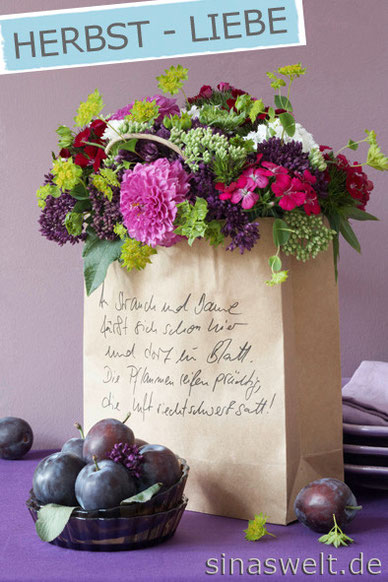 HERBST - LIEBE
An Strauch und Baum
färbt sich schon hier
und dort ein Blatt.
Die Pflaumen reifen prächtig,
die Luft riecht schwer satt!
sinaswelt.de